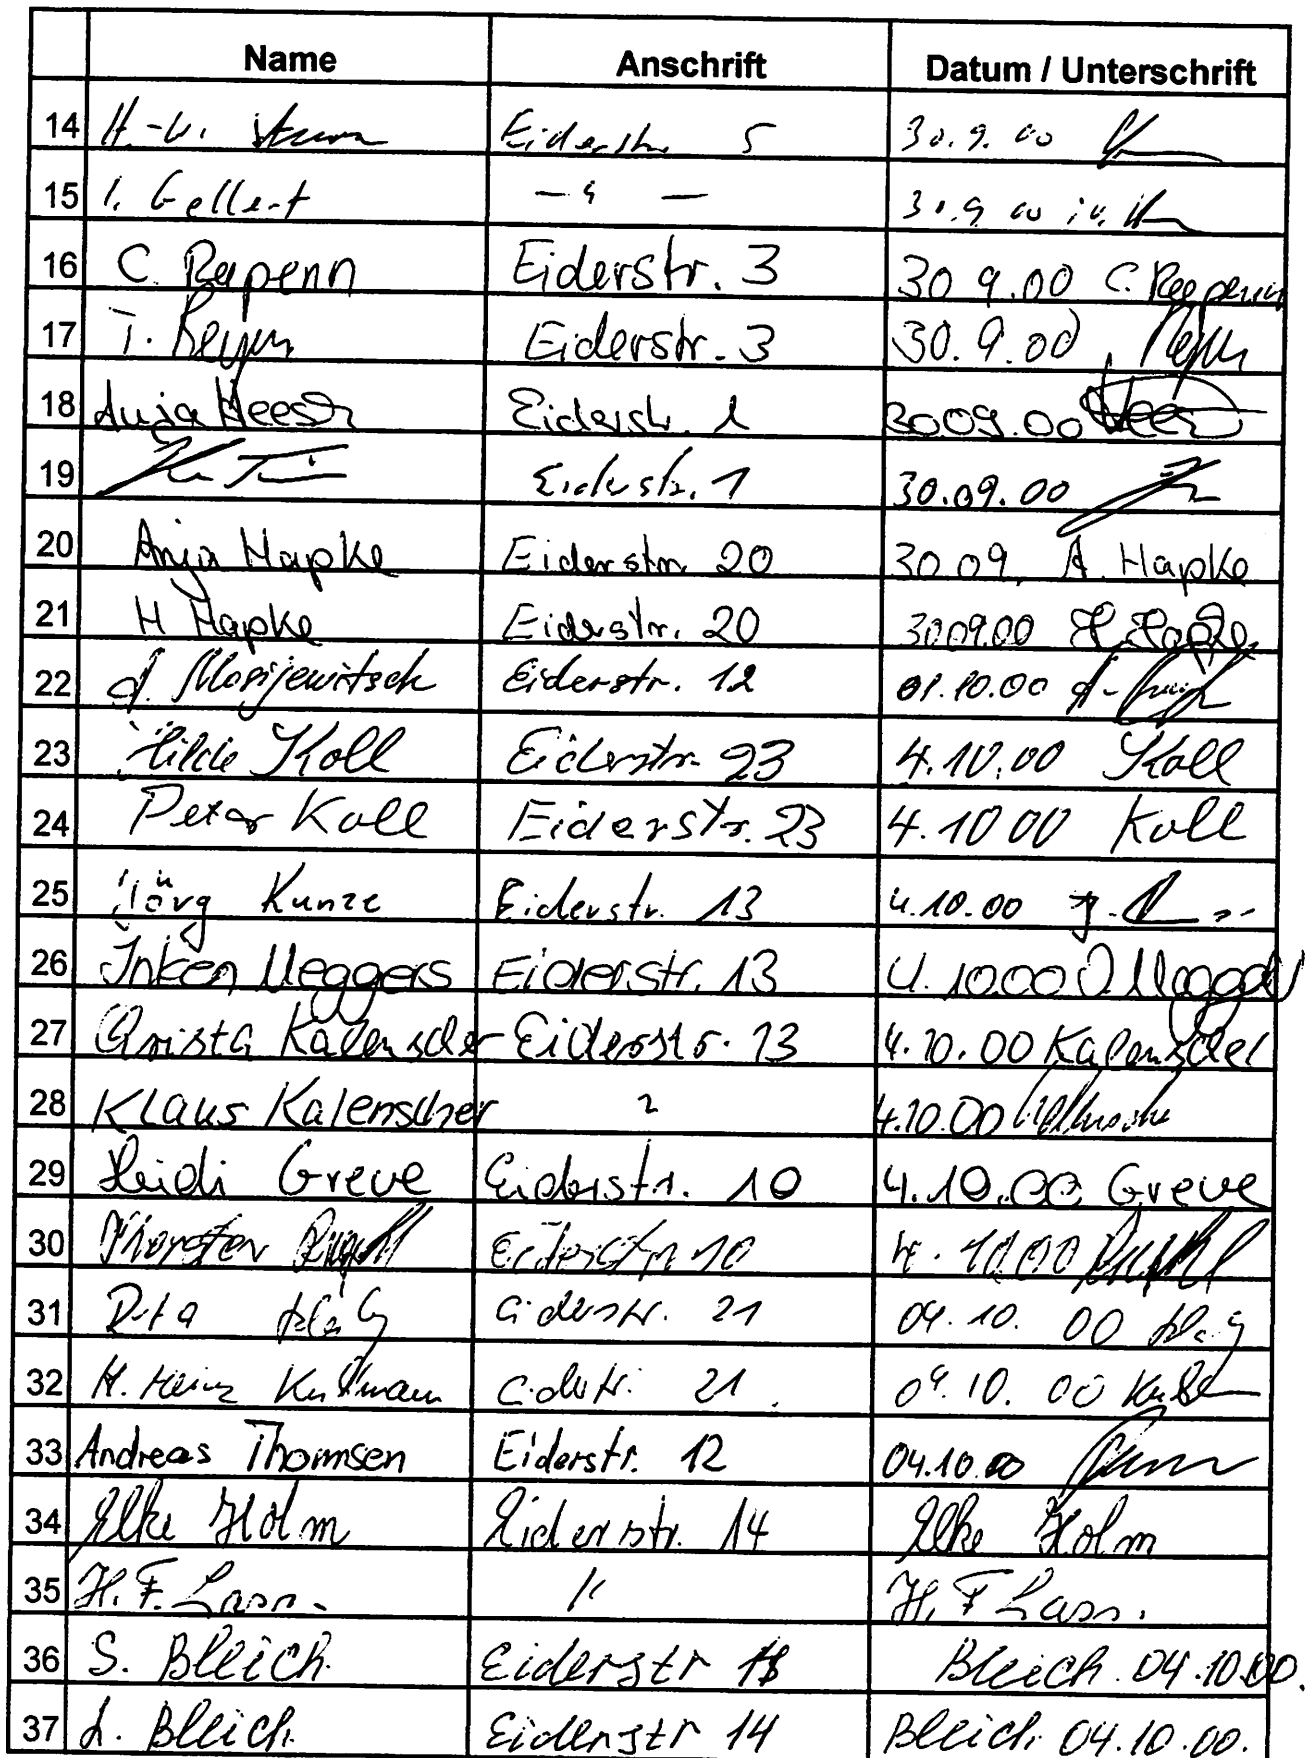 Name Anschrift Datum / Unterschrift
14 H.-W. Eiderstr. 5 30.9.00
15 I. Gellert — " — 30.9.00 i.V.
16 C. Repenn Eiderstr. 3 30 9.00 C. Repenn
17 T. Eiderstr. 3 30.9.00
18 Anja Eiderstr. 1 30.09.00
19 Eiderstr. 1 30.09.00
20 Anja Hapke Eiderstr. 20 30.09. A. Hapke
21 H Hapke Eiderstr. 20 30.09.00 H. Hapke
22 Eiderstr. 12 01.10.00
23 Hilde Koll Eiderstr. 23 4.10.00 Koll
24 Peter Koll Eiderstr. 23 4.10 00 Koll
25 Jörg Kunze Eiderstr. 13 4.10.00 J.
26 Inken Meggers Eiderstr. 13 4.10.00 I Meggers
27 Christa Kalenscher Eiderstr. 13 4.10.00 Kalenscher
28 Klaus Kalenscher " 4.10.00
29 Heidi Greve Eiderstr. 10 4.10.00 Greve
30 Thorsten Eiderstr. 10 4.10.00
31 Rita Eiderstr. 21 04.10. 00
32 H. Heinz Eiderstr. 21 04.10. 00
33 Andreas Thomsen Eiderstr. 12 04.10.00
34 Elke Holm Eiderstr. 14 Elke Holm
35 H. F. Lass. " H. F Lass.
36 S. Bleich. Eiderstr Bleich. 04.10.00.
37 L. Bleich. Eiderstr 14 Bleich. 04.10.00.